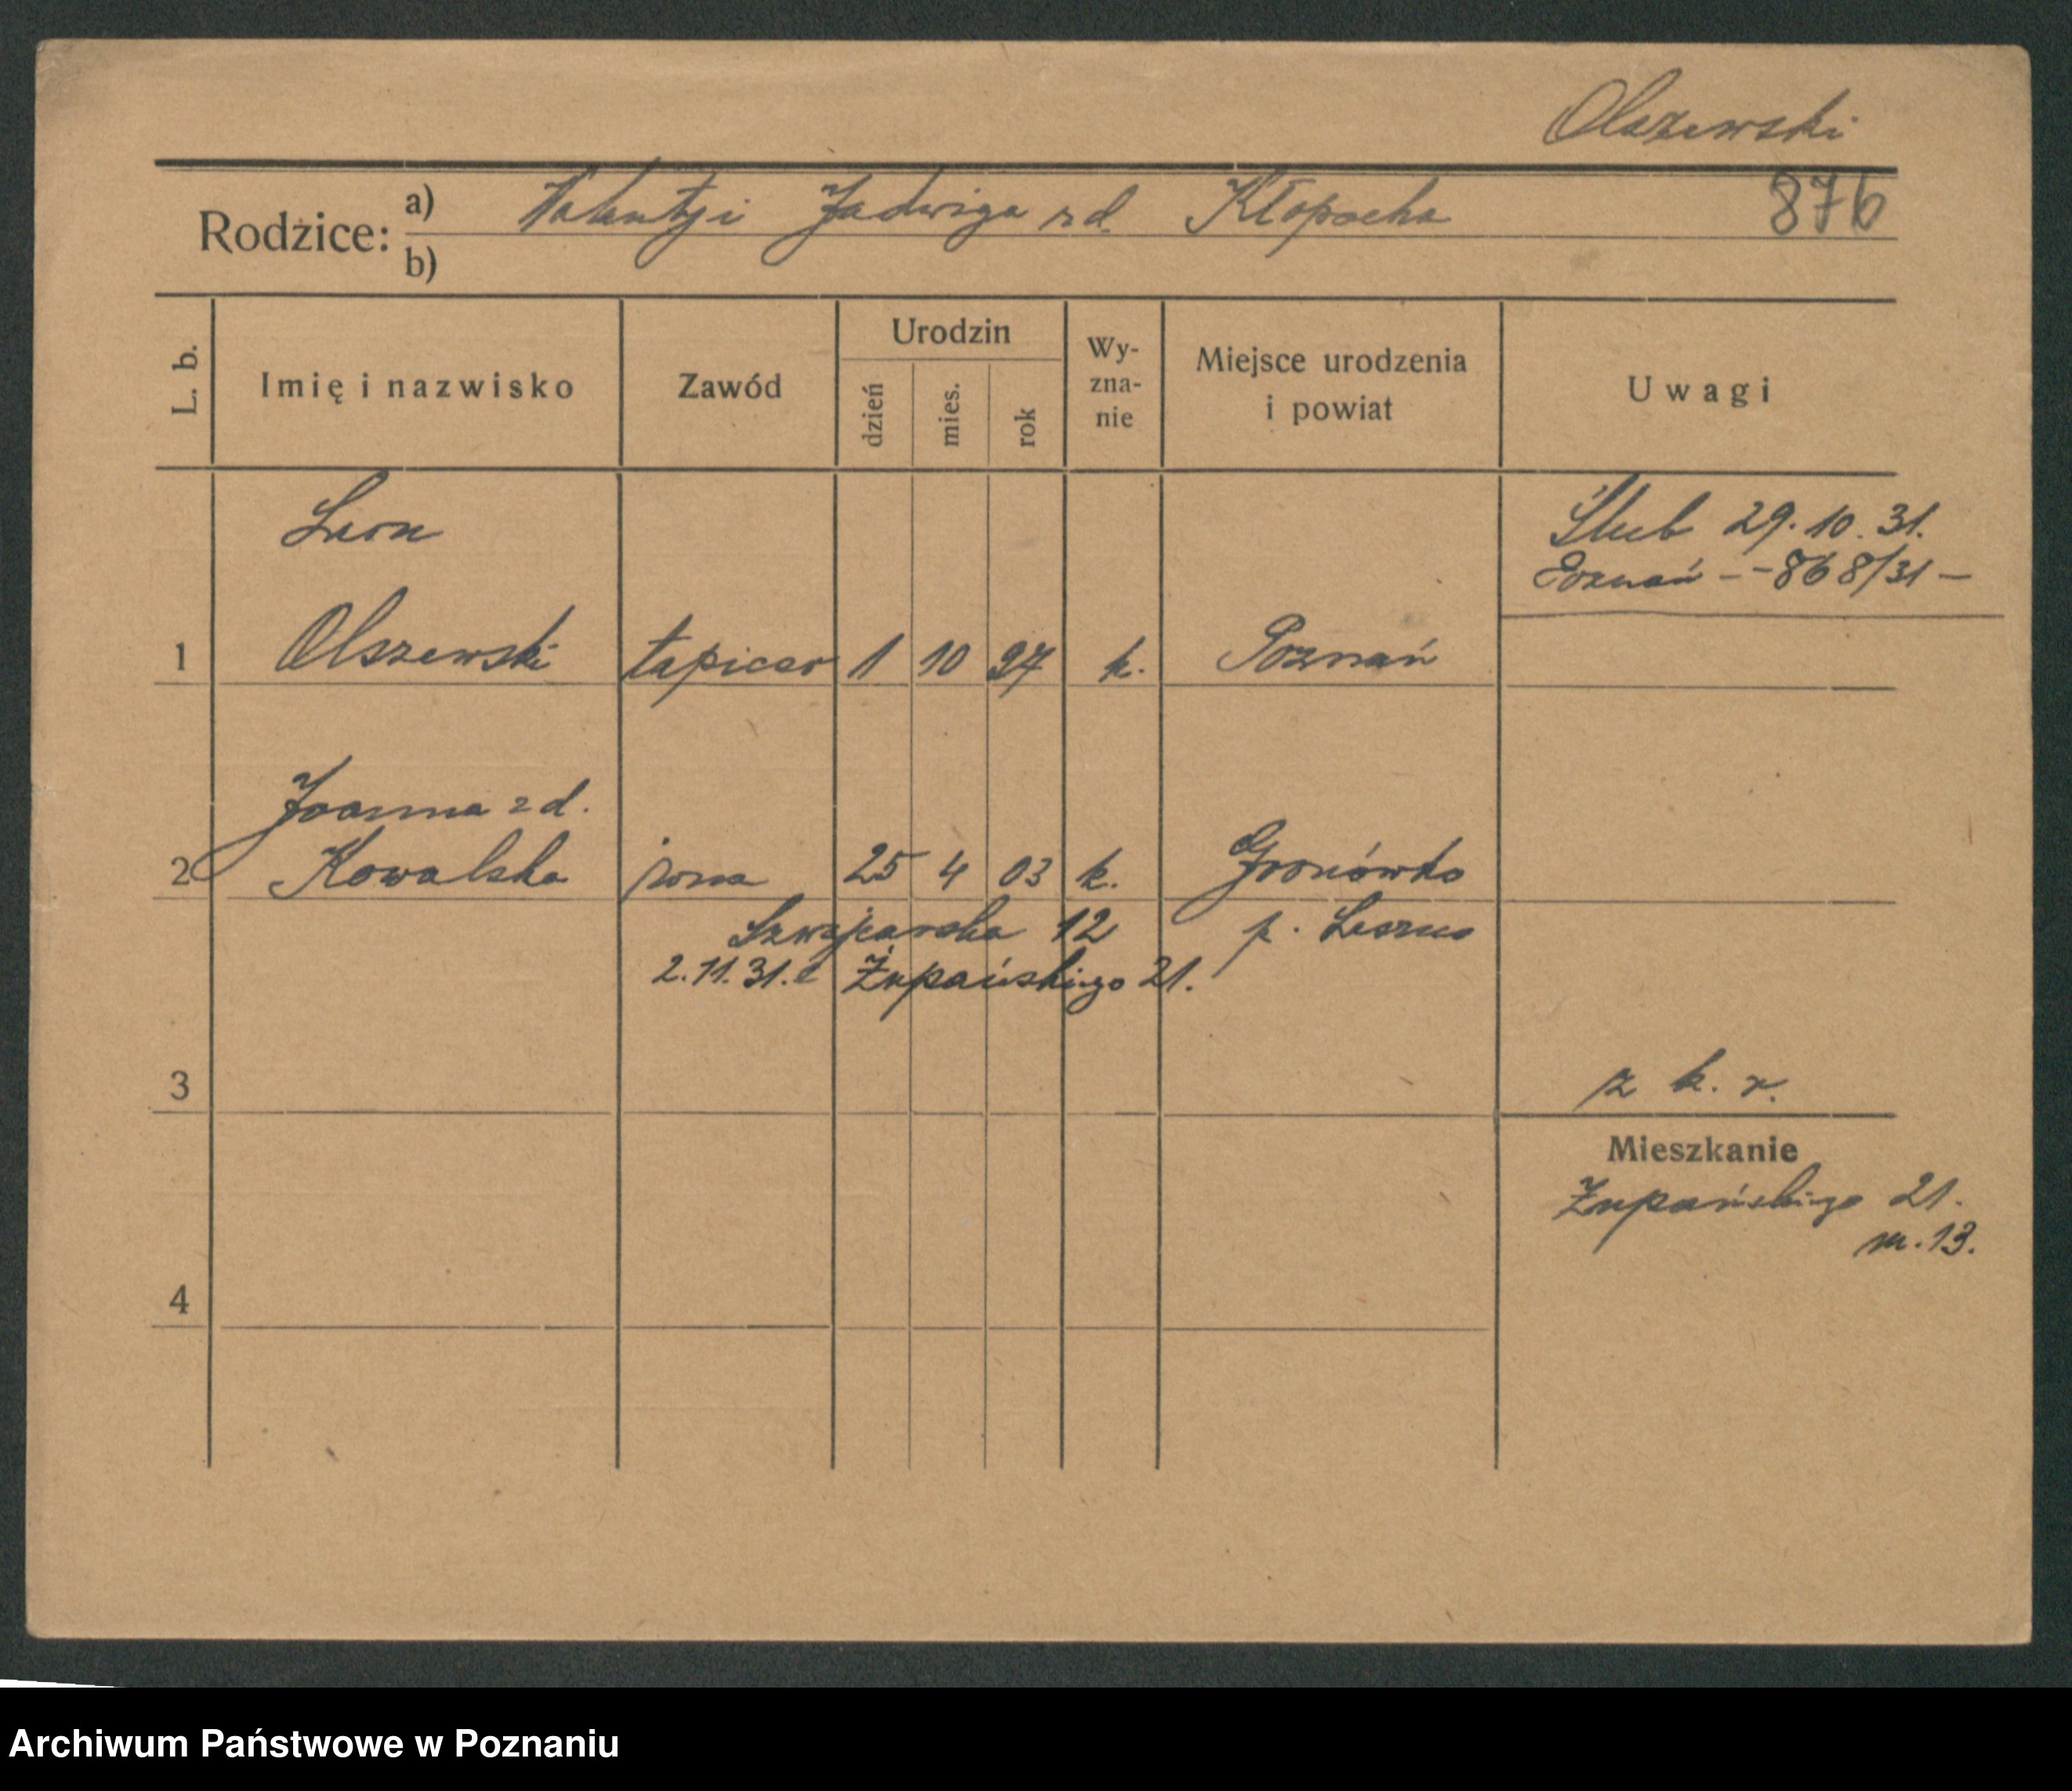 Olszewski
Rodzice: a) Walenty i Jadwiga z d. Kłopocka 876
b)
L. b. Imię i nazwisko Zawód Urodzin dzień mies. rok Wy-zna-nie Miejsce urodzenia i powiat Uwagi
Leon
Ślub 29.10.31.
Poznań - - 868/31 -
1 Olszewski tapicer 1 10 97 k. Poznań
Joanna z d.
2 Kowalska żona 25 4 03 k. Gronówko
Szwajcarska 12 p. Leszno
2.11.31. Żupańskiego 21.
3 z k. r.
Mieszkanie
Żupańskiego 21.
m. 13.
4
Archiwum Państwowe w Poznaniu